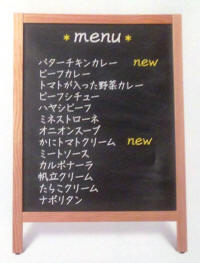 *menu*
バターチキンカレー new
ビーフカレー
トマトが入った野菜カレー
ビーフシチュー
ハヤシビーフ
ミネストローネ
オニオンスープ
かにトマトクリーム new
ミートソース
カルボナーラ
帆立クリーム
たらこクリーム
ナポリタン